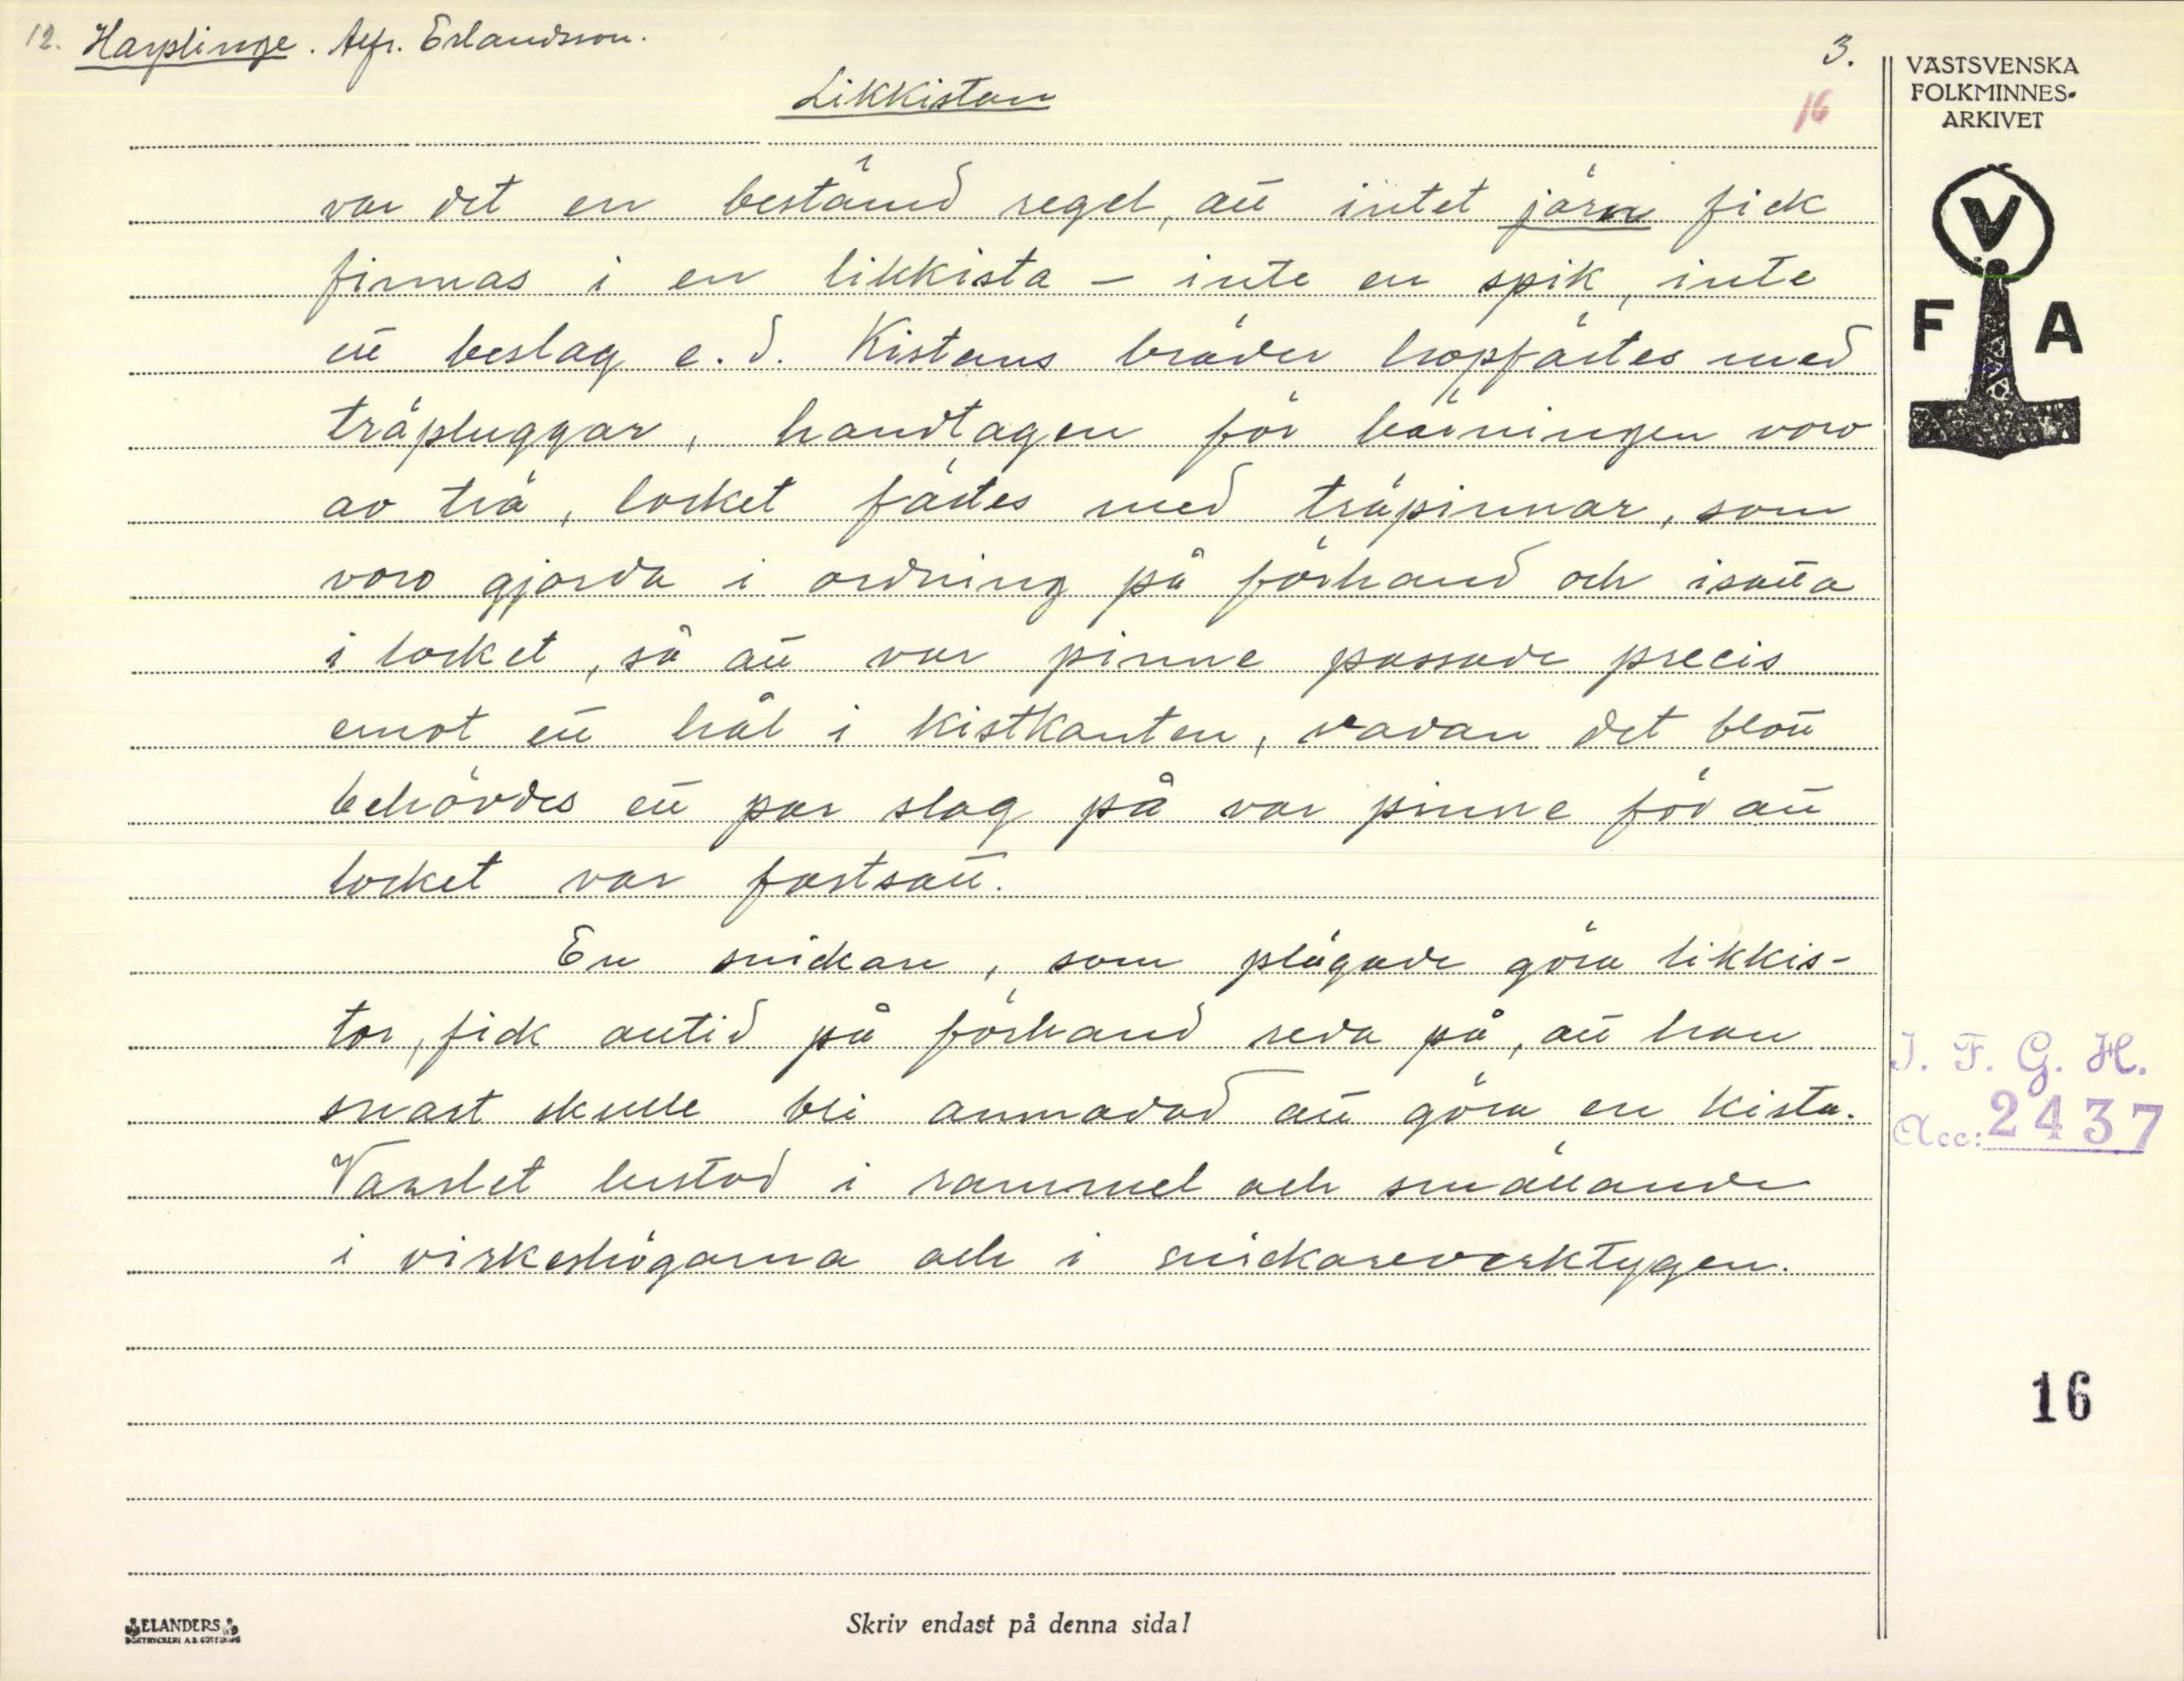 12. Harplinge. Alfr. Erlandsson.
3.
Likkistan
16
var det en bestämd regel, att intet järn fick
finnas i en likkista – inte en spik, inte
ett beslag e.d. Kistans bräder hopfästes med
träpluggar, handtagen för bärningen voro
av trä, locket fästes med träpinnar, som
voro gjorda i ordning på förhand och isatta
i locket, så att var pinne passade precis
emot ett hål i kistkanten, vadan det blott
behövdes ett par slag på var pinne för att
locket var fastsatt.
En snickare, som plägade göra likkis-
tor, fick alltid på förhand reda på, att han
snart skulle bli anmodad att göra en kista.
Varslet bestod i rammel och smällande
i virkeshögarna och i snickareverktygen.
VÄSTSVENSKA
FOLKMINNES-
ARKIVET
V
F A
I. F. G. H.
Acc: 2437
16
ELANDERS
BOKTRYCKERI A.B. GÖTEBORG
Skriv endast på denna sida!